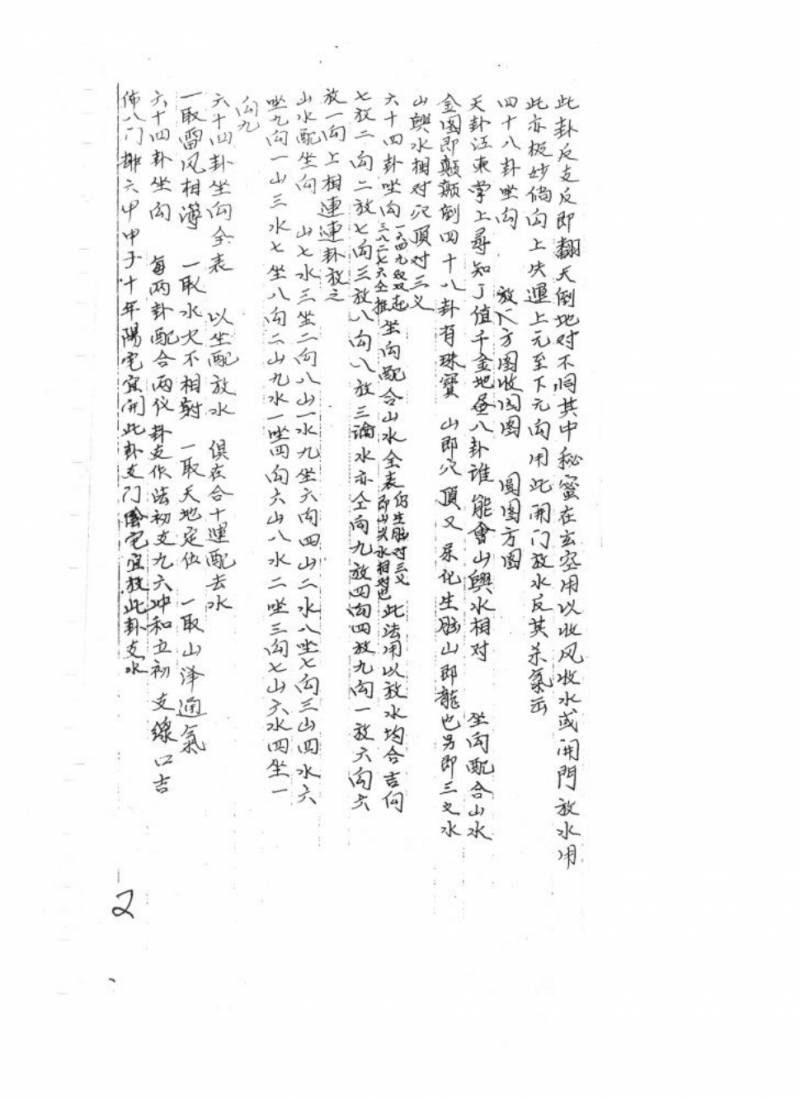 此卦反支反即翻天倒地对不同其中秘蜜在玄空用以收风收水或開門放水用
此亦极妙倘向上失運上元至下元向用此開门放水反其杀氣云
四十八卦坐向 放人方圖收圓圖 圓圖方圖
天卦江東掌上尋知了值千金地畫八卦谁能會山與水相对 坐向配合山水
金圖即颠颠倒四十八卦有珠寶 山即穴頂又 化生脑山即龍也另即三叉水
山與水相对穴頂对三叉
六十四卦坐向 一六四九双双起 三八二七六仝推 坐向配合山水全表 化生脑对三叉 即山与水相对也 此法用以放水均合吉向
七放二向二放七向三放八向八放三 水亦仝向九放四向四放九向一放六向六
放一向上相連連卦放之
山水配坐向 山七水三坐二向八山一水九坐六向四山二水八坐七向三山四水六
坐九向一山三水七坐八向二山九水一坐四向六山八水二坐三向七山六水四坐一
向九
六十四卦坐向全表 以坐配放水 俱在合十運配去水
一取雷风相薄 一取水火不相射 一取天地定位 一取山泽通氣
六十四卦坐向 每两卦配合两仪卦支作法初支九六冲和立初支線口吉
佈八门排六甲甲子十年陽宅宜開此卦支门陰宅宜放此卦支水
2